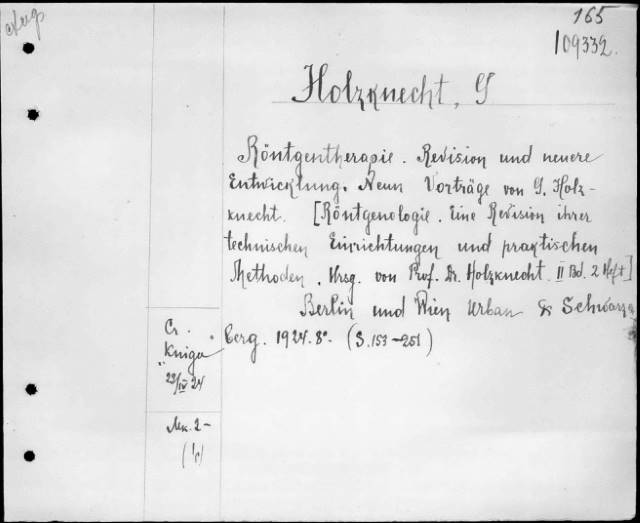 165
109332.
Holzknecht, G
Röntgentherapie. Revision und neuere
Entwicklung. Neun Vorträge von G. Holz-
knecht. [Röntgenologie. Eine Revision ihrer
technischen Einrichtungen und praktischen
Methoden. Hrsg. von Prof. Dr. Holzknecht II Bd. 2 Heft]
Berlin und Wien Urban & Schwarz
berg. 1924. 8°. (S. 153-251)
Cr.
"Kniga"
23/IV 24
Лек. 2-